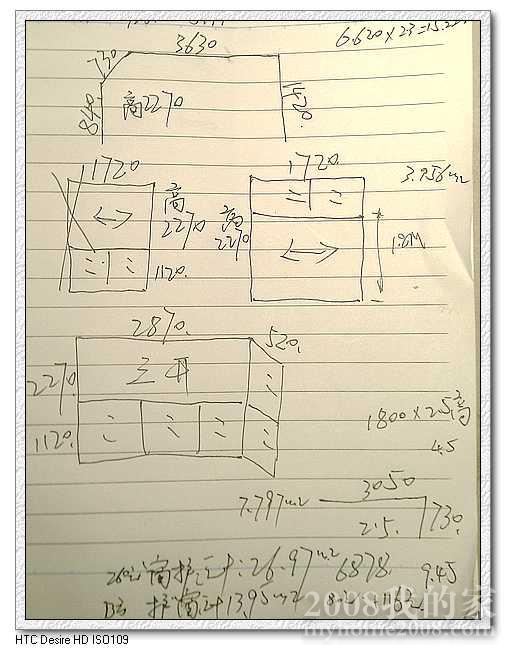 3630
730
6.620×23=15.2
840
高2270
1420.
1720
1720.
3.956m2
高
2270
高
2270
1.8M
1120.
2870.
520.
2270.
三开
1120.
1800×2.5高
4.5
3050
7.797m2
2.5.
730.
窗护三计:26.97m2 6878. 9.45
护窗计13.95m2
2008我的家
myhome2008.com
HTC Desire HD ISO109